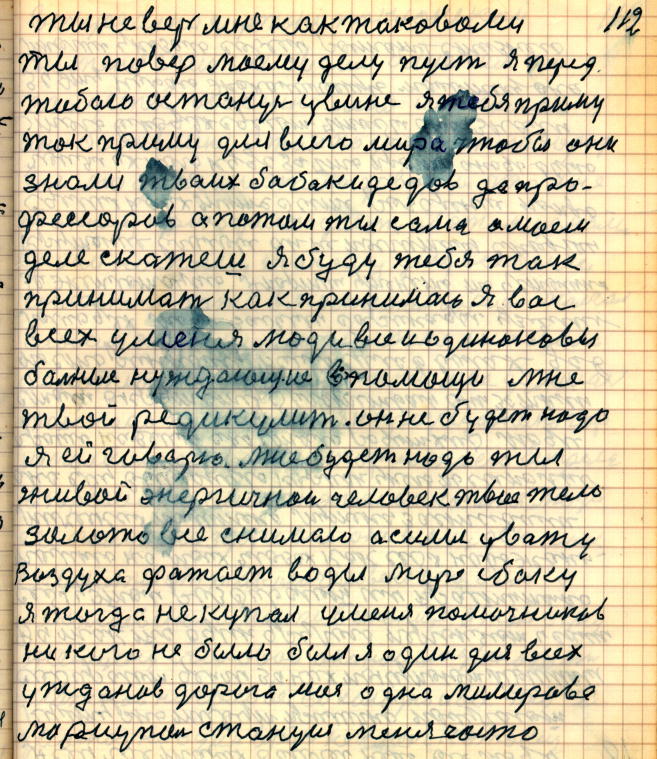 112
ты не вер мне как таковому
ты повер моему делу пуст я перед
тобою останус увмне я тебя приму
ток приму для всего мира чтобы они
знали твоих бабак и дедов да про-
фессоров а потом ты сама о моем
деле скажеш я буду тебя так
принимат как принимаю я вас
всех у меня люди все иодиноковы
болные нуждающие в помощи мне
твой редикулит. он не будет надо
я ей говорю. мне будет надо ты
живой энергичной человек твое тело
золото все снимаю а силы увату
воздуха фатает воды море сбоку
я тогда не купал у меня помочников
никого не было был я один для всех
ужданов дорога моя одна миллерова
мариупол станцыя меня часто